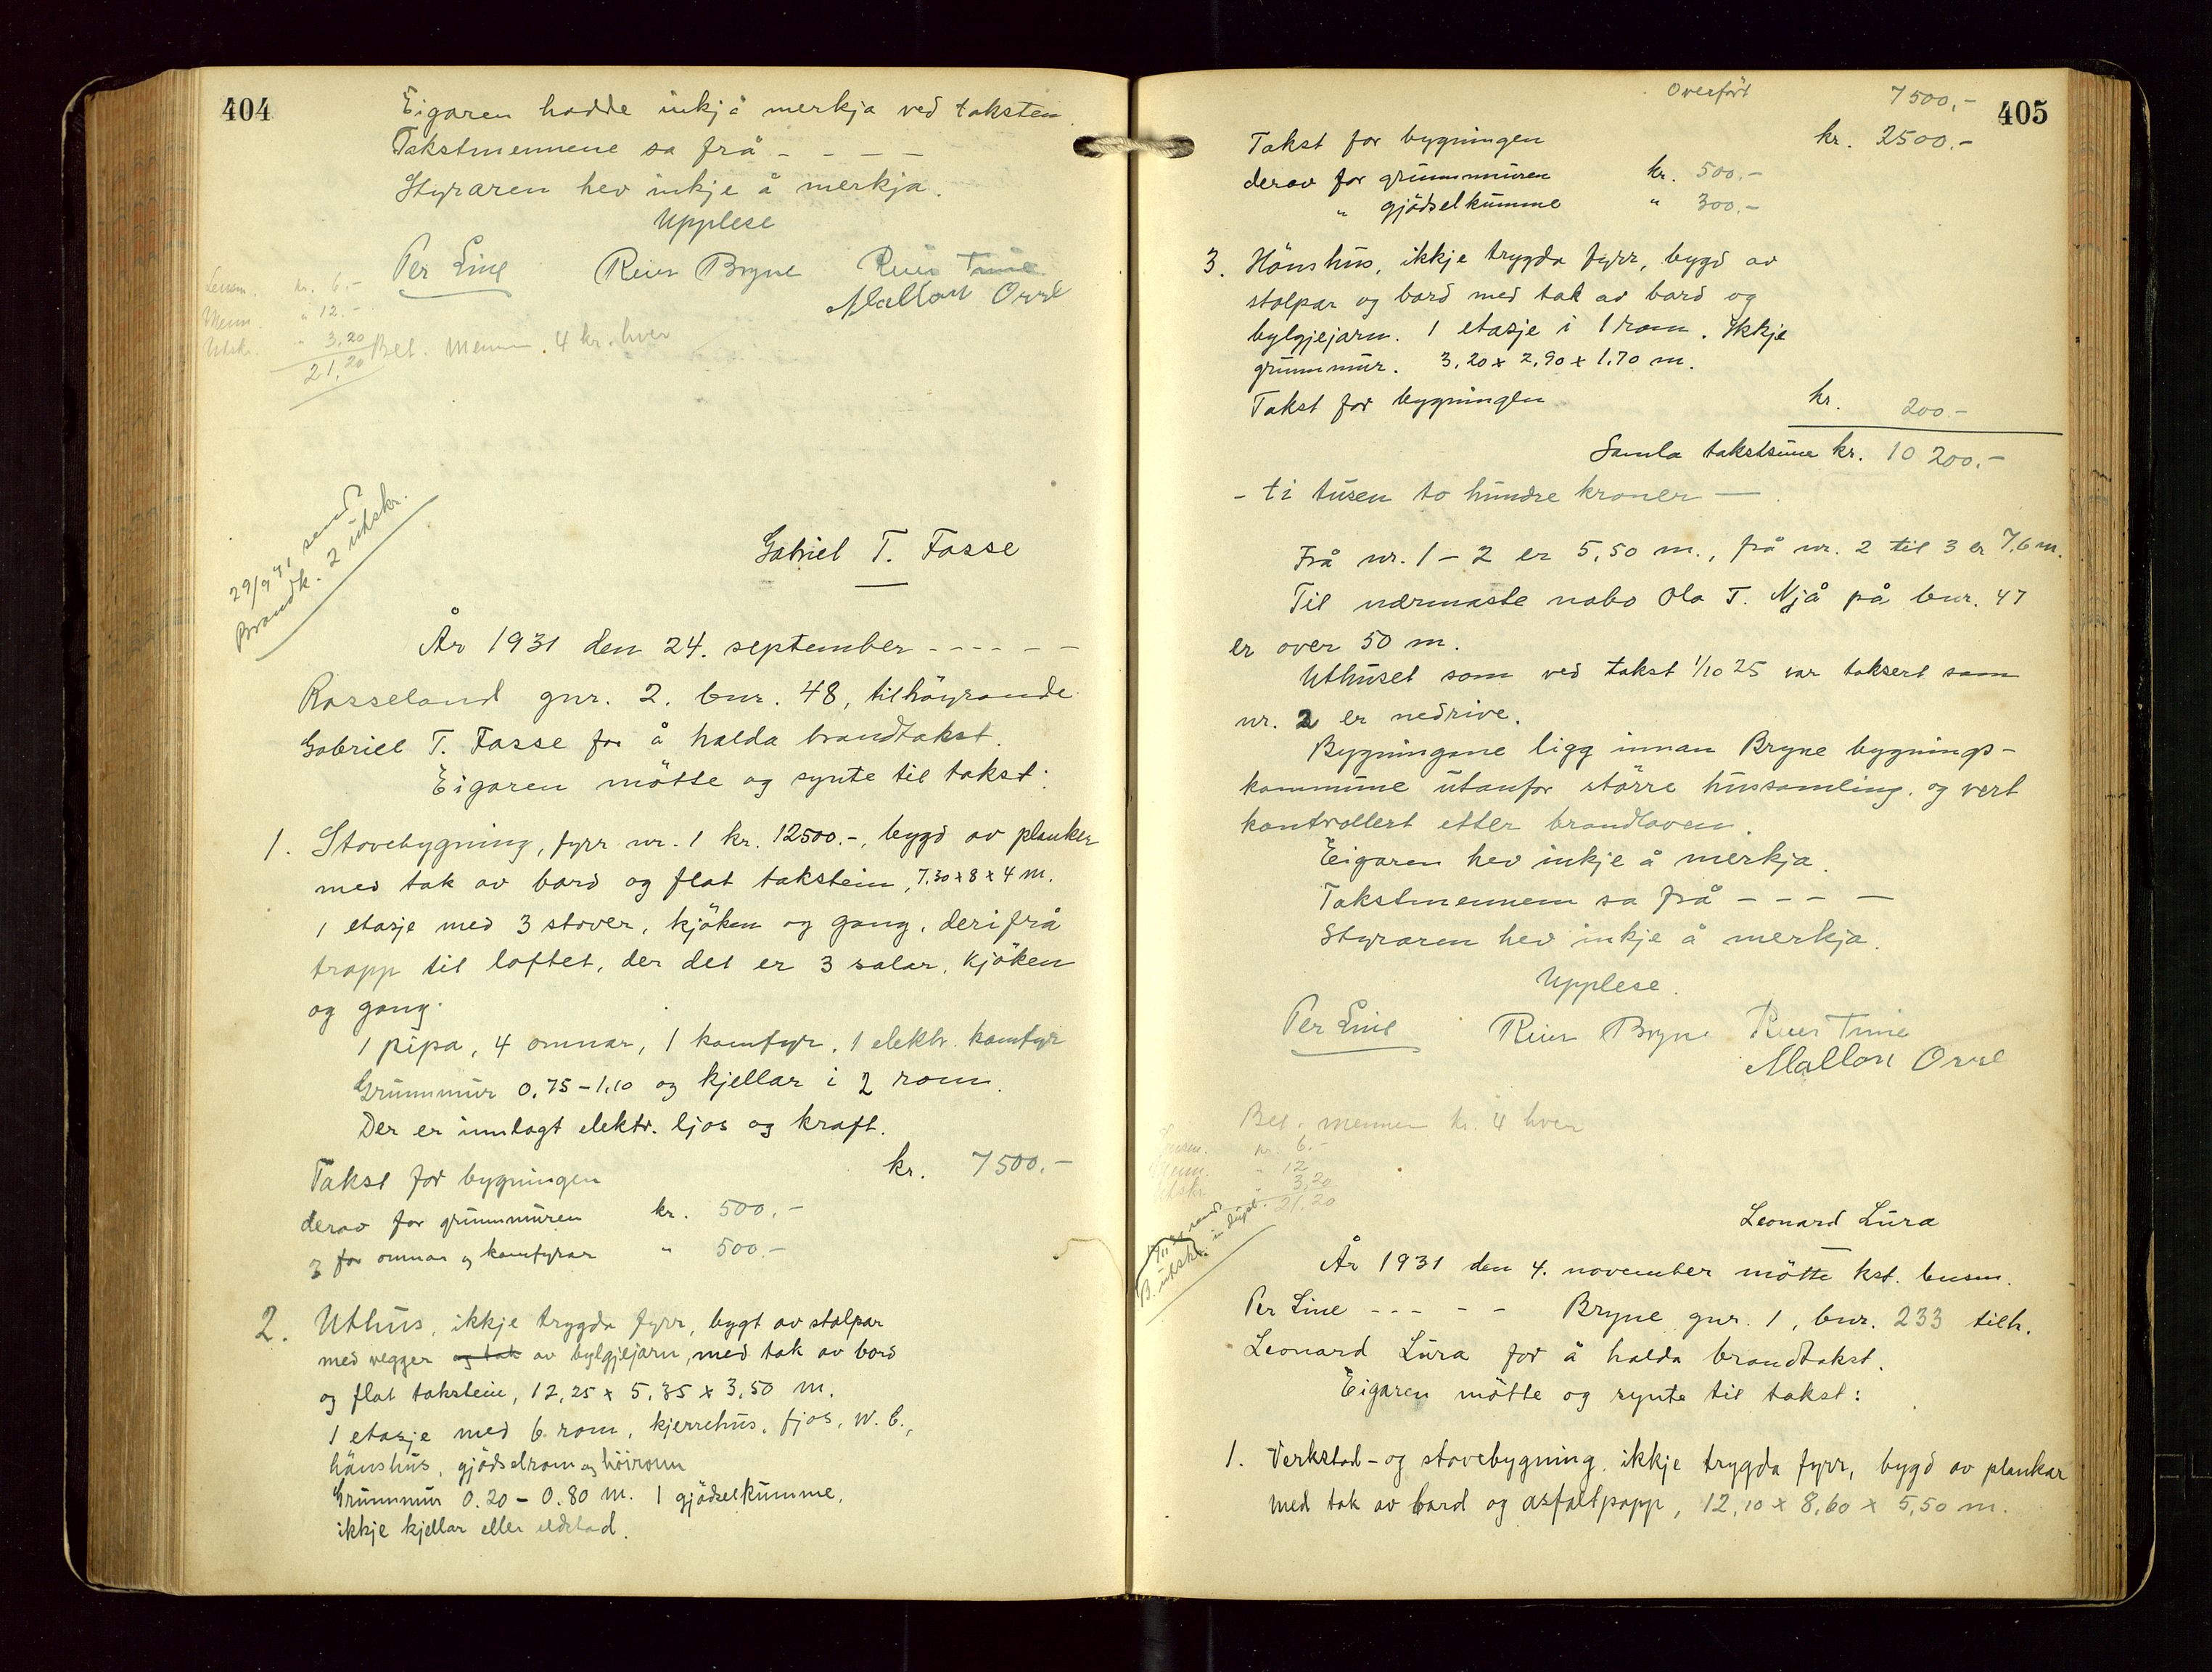 404
Eigaren hadde inkje å merkja ved taksten.
Takstmennene sa frå - - - -
Styraren hev inkje å merkja.
Upplese
Per Line Reier Bryne Reier Time
Mallon Orre
Lensm. kr. 6.-
Menn. " 12.-
Utskr. " 3,20
21,20
Bet. menn. 4 kr. hver
29/9 31 send
Brandk. 2 utskr.
Gabriel T. Fosse
År 1931 den 24. september - - - - -
Rosseland gnr. 2. bnr. 48, tilhöyrande
Gabriel T. Fosse for å halda brandtakst.
Eigaren mötte og synte til takst:
1. Stovebygning, fyrr nr. 1 kr. 12500.-, bygd av planker
med tak av bord og flat takstein, 7,30 x 8 x 4 m.
1 etasje med 3 stover, kjöken og gang, derifrå
trapp til loftet, der det er 3 salar, kjöken
og gang.
1 pipa, 4 omnar, 1 komfyr, 1 elektr. komfyr
Grunnmur 0,75 - 1,10 og kjellar i 2 rom.
Der er innlagt elektr. ljos og kraft.
Takst for bygningen kr. 7500.-
derav for grunnmuren kr. 500.-
" for omnar og komfyrar " 500.-
2. Uthus, ikkje trygda fyrr, bygt av stolpar
med vegger og tak av bylgjejarn, med tak av bord
og flat takstein, 12,25 x 5,35 x 3,50 m.
1 etasje med 6 rom, kjerrehus, fjos, W.C.,
hönshus, gjödselrom og höirom
Grunnmur 0.20 - 0.80 m. 1 gjödselkumme,
ikkje kjellar eller eldstad.
405
Overfört 7500,-
Takst for bygningen kr. 2500.-
derav for grunnmuren kr. 500.-
" gjödselkumme " 300.-
3. Hönshus, ikkje trygda fyrr, bygd av
stolpar og bord med tak av bord og
bylgjejarn. 1 etasje i 1 rom. Ikkje
grunnmur. 3,20 x 2,90 x 1,70 m.
Takst for bygningen kr. 200.-
Samla takstsum kr. 10 200.-
- ti tusen to hundre kroner -
Frå nr. 1 - 2 er 5,50 m., frå nr. 2 til 3 er 7,6 m.
Til nærmaste nabo Ola T. Njå på bnr. 47
er over 50 m.
Uthuset som ved takst 1/10 25 var taksert som
nr. 2 er nedrive.
Bygningane ligg innan Bryne bygnings-
kommune utanfor större hussamling, og vert
kontrollert etter brandloven.
Eigaren hev inkje å merkja.
Takstmennem sa frå - - - -
Styraren hev inkje å merkja.
Upplese.
Per Line Reier Bryne Reier Time
Mallon Orre
Bet. mennen kr. 4 hver
Lensm. kr. 6.-
Menn. " 12
Utskr. " 3,20
21,20
B. utskr. in dupl.
Leonard Lura
År 1931 den 4. november mötte kst. lensm.
Per Line - - - - - Bryne gnr. 1, bnr. 233 tilh.
Leonard Lura for å halda brandtakst.
Eigaren mötte og synte til takst:
1. Verkstad- og stovebygning, ikkje trygda fyrr, bygd av plankar
med tak av bord og asfaltpapp, 12,10 x 8,60 x 5,50 m.